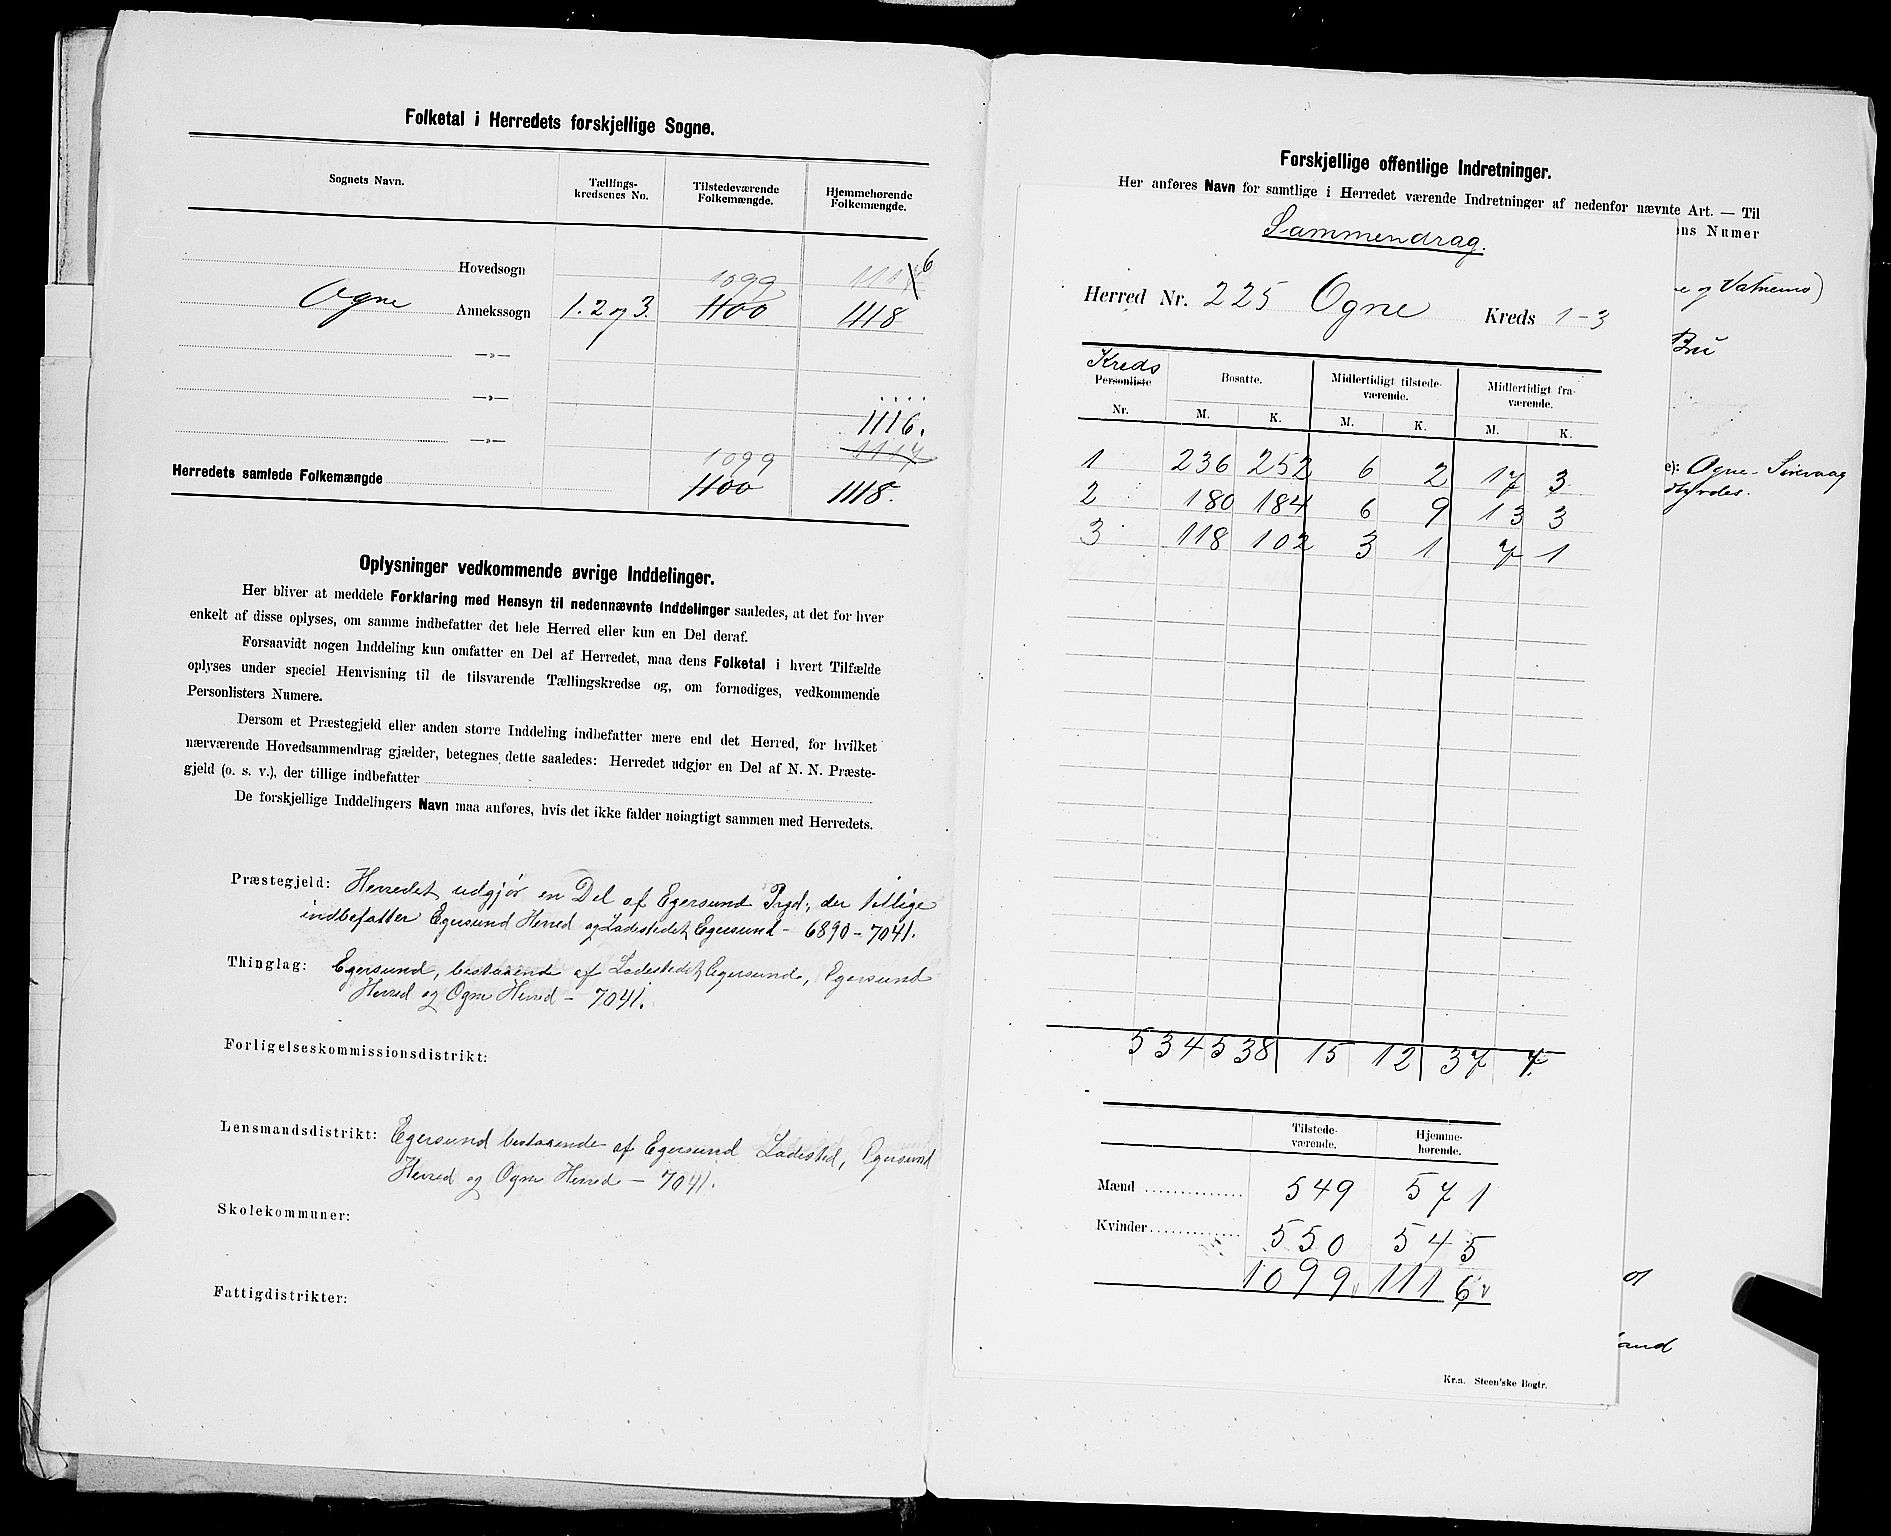 Folketal i Herredets forskjellige Sogne.
Sognets Navn. Tællings-kredsenes No. Tilstedeværende Folkemængde. Hjemmehørende Folkemængde.
Hovedsogn 1099 1117 6
Ogne Annekssogn 1. 2 og 3. 1100 1118
—»—
—»—
1116.
—»— 1099 1117
Herredets samlede Folkemængde 1100 1118.
Oplysninger vedkommende øvrige Inddelinger.
Her bliver at meddele Forklaring med Hensyn til nedennævnte Inddelinger saaledes, at det for hver
enkelt af disse oplyses, om samme indbefatter det hele Herred eller kun en Del deraf.
Forsaavidt nogen Inddeling kun omfatter en Del af Herredet, maa dens Folketal i hvert Tilfælde
oplyses under speciel Henvisning til de tilsvarende Tællingskredse og, om fornødiges, vedkommende
Personlisters Numere.
Dersom et Præstegjeld eller anden større Inddeling indbefatter mere end det Herred, for hvilket
nærværende Hovedsammendrag gjælder, betegnes dette saaledes: Herredet udgjør en Del af N. N. Præste-
gjeld (o. s. v.), der tillige indbefatter
De forskjellige Inddelingers Navn maa anføres, hvis det ikke falder nøiagtigt sammen med Herredets.
Præstegjeld: Herredet udgjør en Del af Egersund Prgd., der tillige
indbefatter Egersund Herred og Ladestedet Egersund – 6890 – 7041.
Thinglag: Egersund, bestaaende af Ladestedet Egersund, Egersund
Herred og Ogne Herred – 7041.
Forligelseskommissionsdistrikt:
Lensmandsdistrikt: Egersund bestaaende af Egersund Ladested, Egersund
Herred og Ogne Herred – 7041.
Skolekommuner:
Fattigdistrikter:
Forskjellige offentlige Indretninger.
Her anføres Navn for samtlige i Herredet værende Indretninger af nedenfor nævnte Art. — Til
ens Numer
Sammendrag.
e og Vatnemo)
Herred Nr. 225 Ogne Kreds 1–3
Bru
Kreds
Personliste Nr. Bosatte. Midlertidigt tilstede-værende. Midlertidigt fra-værende.
M. K. M. K. M. K.
1 236 252 6 2 17 3
e): Ogne - Sirevaag
2 180 184 6 9 13 3
3 118 102 3 1 7 1
534 538 15 12 37 7.
Tilstede-værende. Hjemme-hørende.
Mænd 549 571
Kvinder 550 545
1099 1116
and
Kr.a. Steen'ske Bogtr.